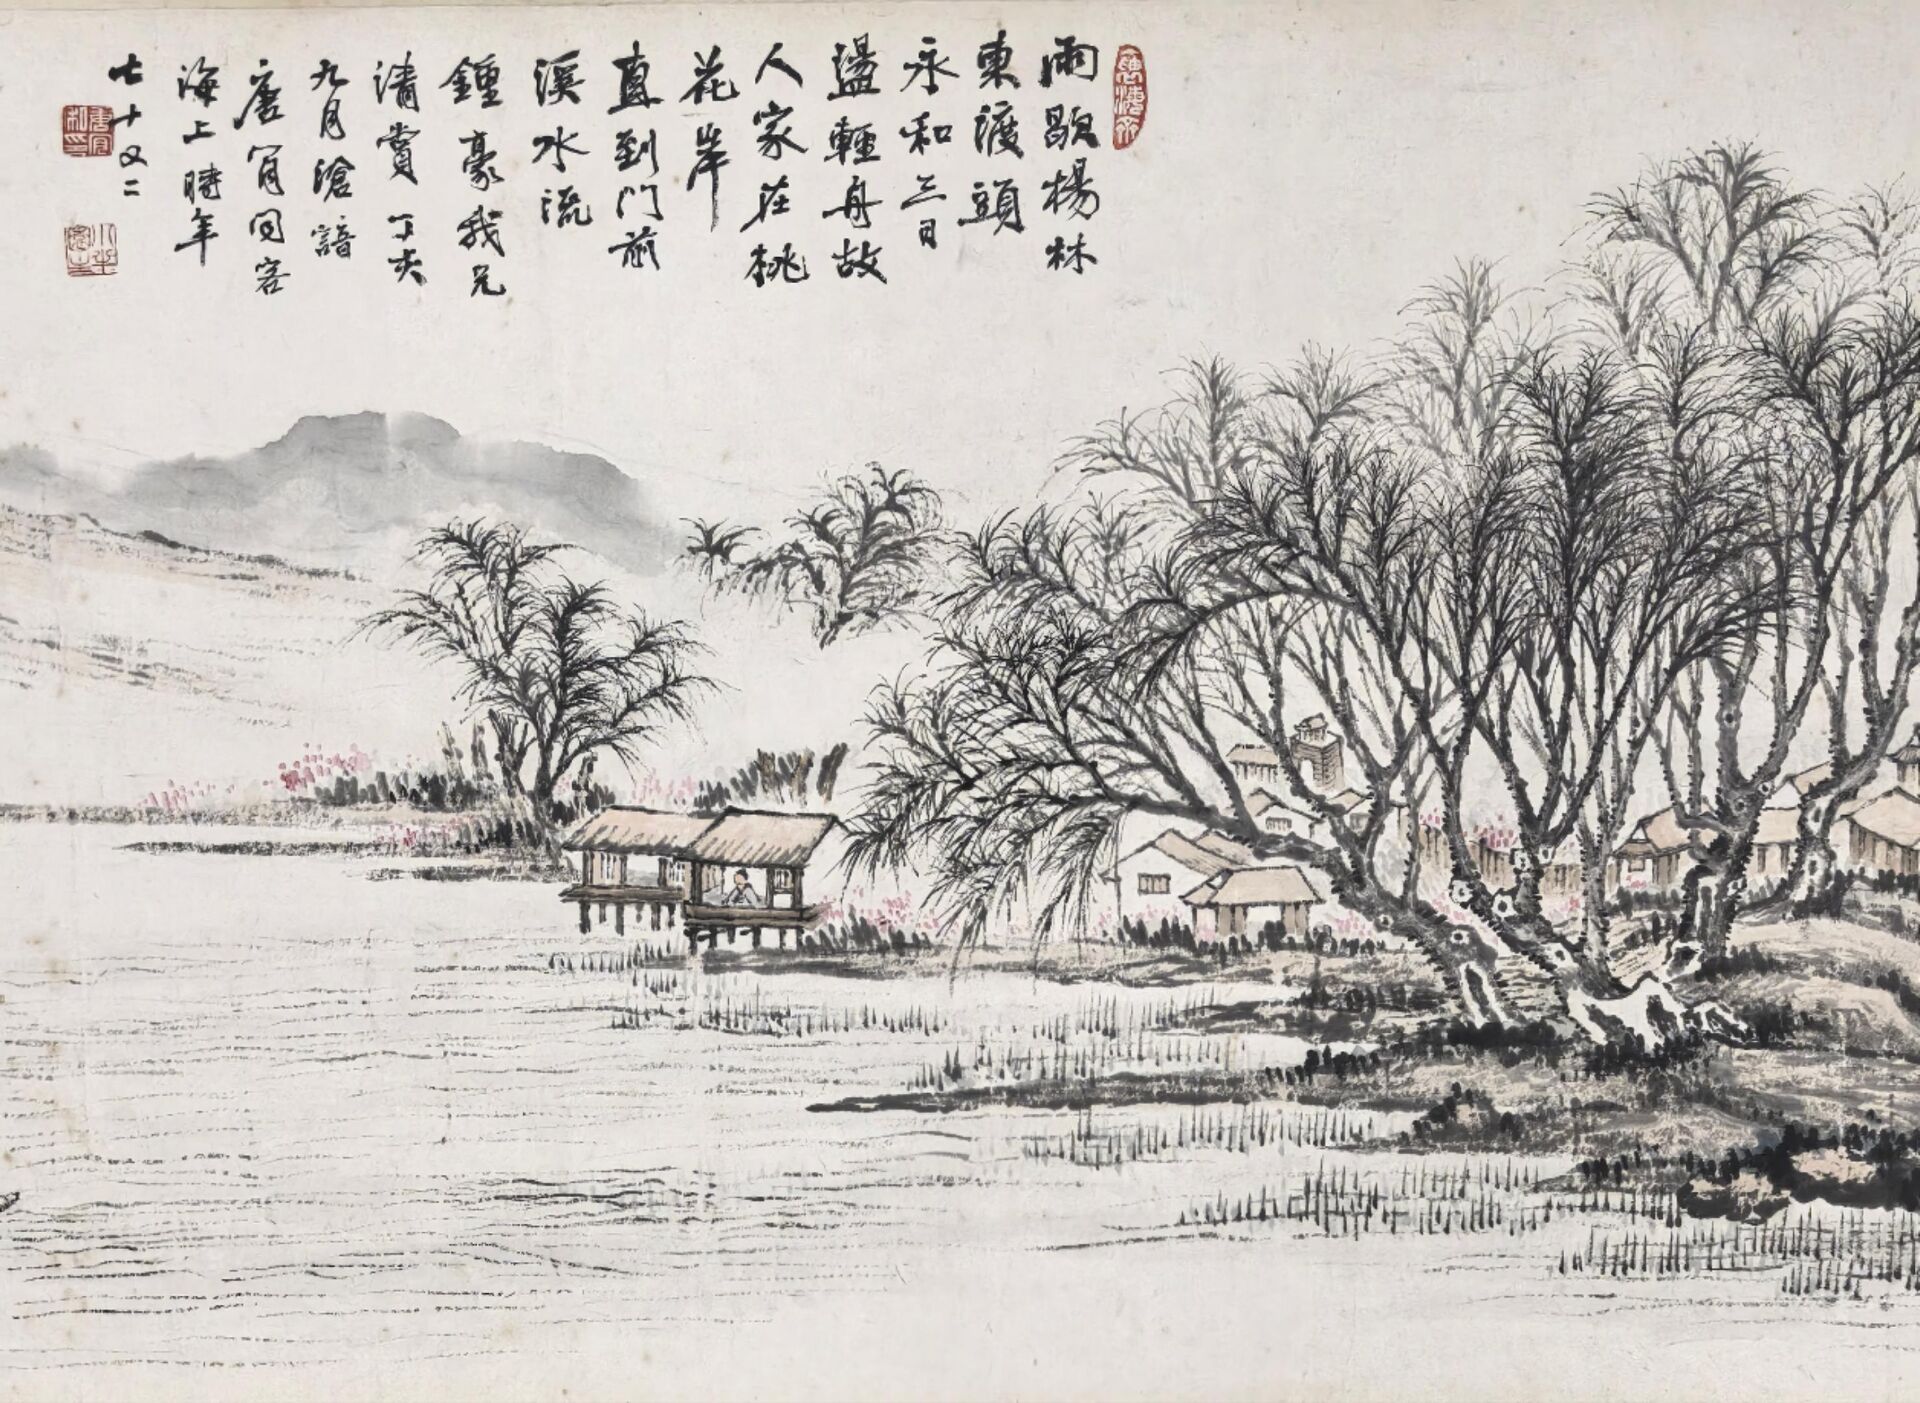 雨歇楊林
東渡頭
永和三日
盪輕舟故
人家在桃
花岸
直到門前
溪水流
鍾豪我兄
清賞丁亥
九月滄諳
唐肎同客
海上時年
七十又二